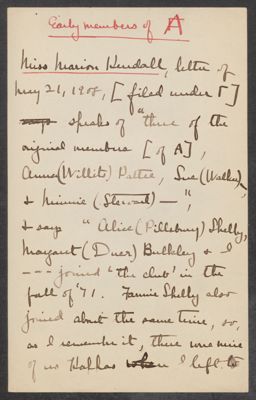 Early members of A
Miss Marion Kendall, letter of
May 21, 1908, [filed under Γ]
says speaks of "three of the
original members [of A],
Anna (Willits) Pattee, Sue (Walker)—,
& Minnie (Steward) — ",
& says "Alice (Pillsbury) Shelby,
Margaret (Duer) Bulkley & I
--- joined 'the club' in the
fall of '71. Fannie Shelby also
joined about the same time, so,
as I remember it, there were nine
of us Kappas when I left to